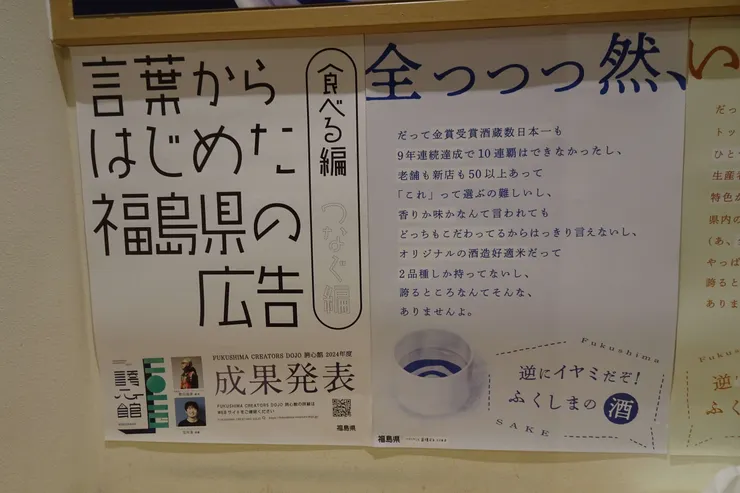 言葉から
はじめた
福島県の
広告
食べる編
つなぐ編
FUKUSHIMA CREATORS DOJO 誘心館 2024年度
成果発表
FUKUSHIMA CREATORS DOJO
WEBサイトをご確認ください
福島県
全っつつっ然、
だって金賞受賞酒蔵数日本一も
9年連続達成で10連覇はできなかったし、
老舗も新店も50以上あって
「これ」って選ぶの難しいし、
香りか味かなんて言われても
どっちもこだわってるからはっきり言えないし、
オリジナルの酒造好適米だって
2品種しか持ってないし、
誇るところなんてそんな、
ありませんよ。
Fukushima
逆にイヤミだぞ!
ふくしまの酒
SAKE
福島県
い
だっ
トッ
ひと
生産
特色が
県内の
(あ、
やっぱ
誇ると
ありま
Fukus
逆に
ふく
S